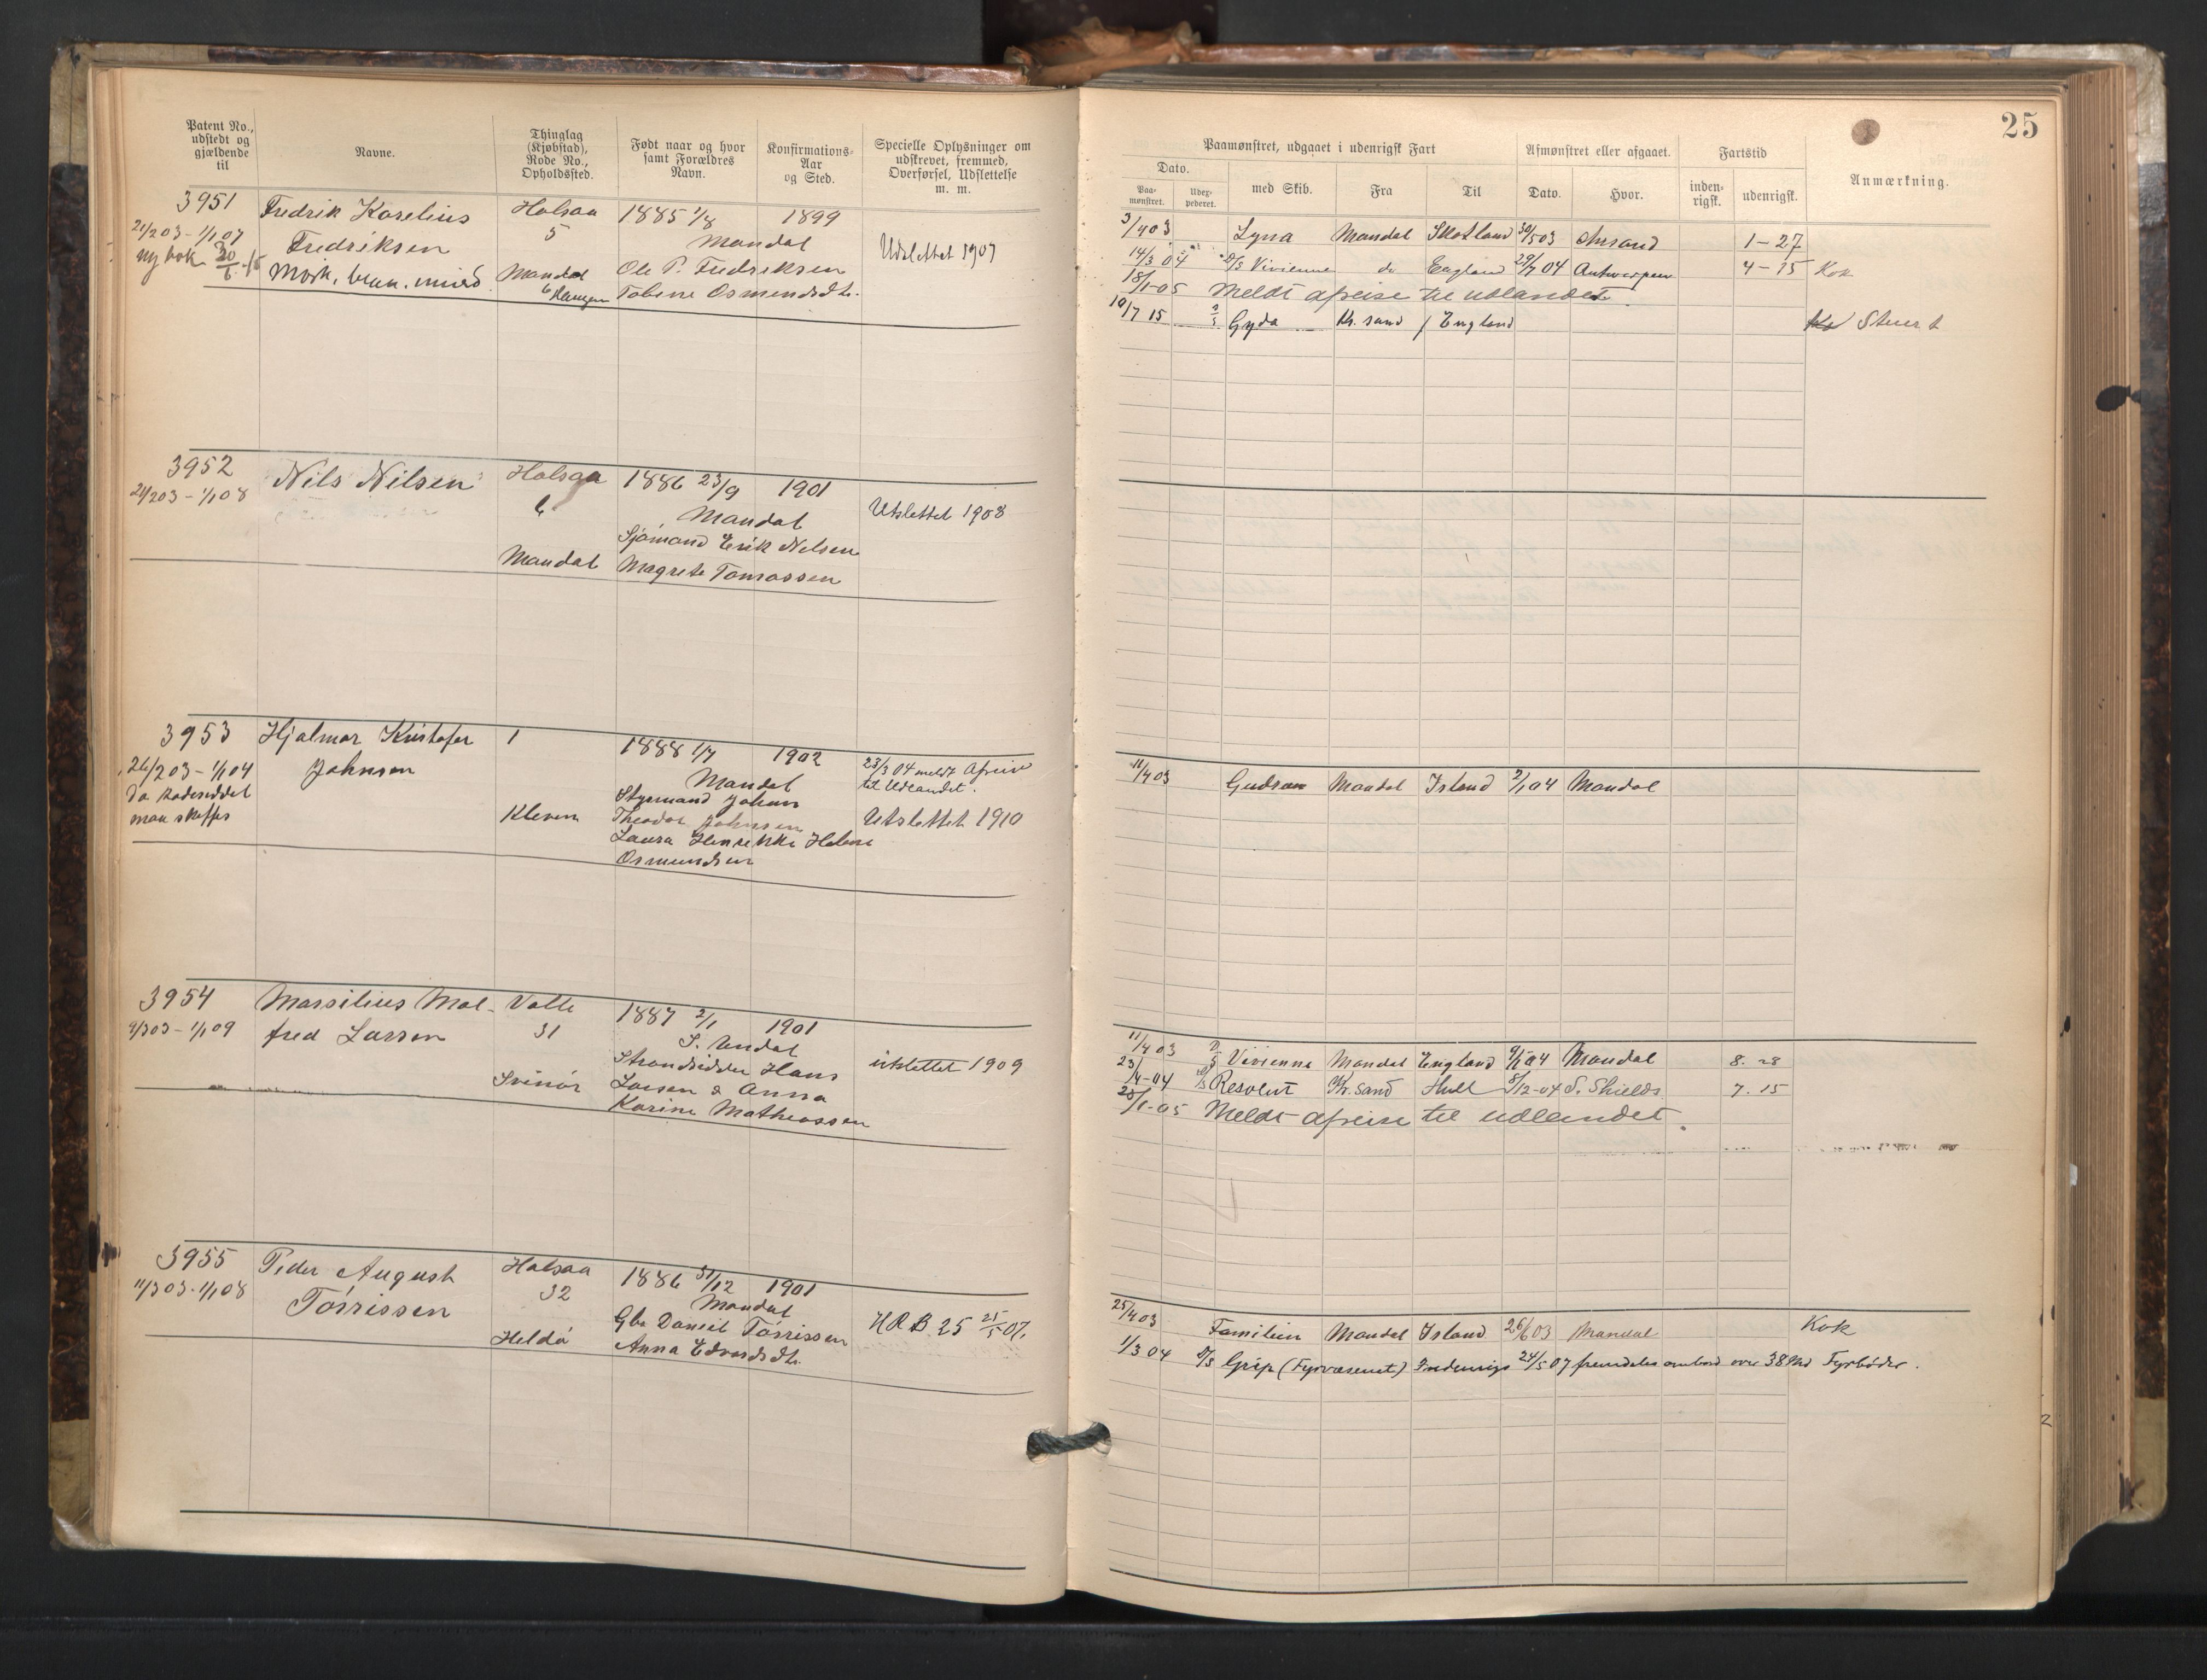 Patent No., udstedt og gjældende til
Navne.
Thinglag (Kjøbstad), Rode No., Opholdssted.
Født naar og hvor samt Forældres Navn.
Konfirmations-Aar og Sted.
Specielle Oplysninger om udskrevet, fremmed, Overførsel, Udslettelse m. m.
3951
21/2 03 - 1/1 07
ny bok 30/6 - 15
Fredrik Karelius
Fredriksen
Mørk,
Halsaa
5
Mandal
1885 1/8 1899
Mandal
Ole P. Fredriksen
Tobine Osmendsdtr.
Udslettet 1907
3952
24/2 03 - 1/1 08
Nils Nilsen
Halsaa
6
Mandal
1886 23/9 1901
Mandal
Sjømand Erik Nilsen
Magrete Tomassen
Utslettet 1908
3953
26/2 03 - 1/1 04
Hjalmar Kristofer
Johnsen
1
Kleven
1888 1/7 1902
Mandal
Styrmand Johan
Theodor Johnsen
Laura Henrikke Helene
Osmundsen
23/3 04 meldt Afreise
til Udlandet.
Utslettet 1910
3954
9/3 03 - 1/1 09
Marsilius Mal-
fred Larsen
Valle
31
Svinør
1887 2/1 1901
S. Undal
Strandsidder Hans
Larsen & Anna
Karine Matheassen
utslettet 1909
3955
11/3 03 - 1/1 08
Peder August
Tørrissen
Halsaa
32
Heldø
1886 31/12 1901
Mandal
Gbr Daniel Tørrissen
Anna Edvardsdtr.
HRB 25 25/5 07.
25
Paamønstret, udgaaet i udenrigsk Fart
Afmønstret eller afgaaet.
Fartstid
Anmærkning.
Dato.
Paa-mønstret.
Udex-pederet.
med Skib.
Fra
Til
Dato.
Hvor.
inden-rigsk.
udenrigsk.
3/4 03 Lyna Mandal Skotland 30/5 03 1-27
14/3 04 D/S Vivienne do England 29/7 04 Antwerpen 4-15 Kok
18/1-05 Meldt afreise til udlandet.
10/7 15 D/S Gyda Kr.sand / England Stuert
11/4 03 Gudrun Mandal Island 2/1 04 Mandal
11/4 03 D/S Vivienne Mandal England 9/1 04 Mandal 8. 28
23/4-04 D/S Resolut Kr.sand Hull 8/12-04 S. Shields 7. 15
25/1-05 Meldt afreise til udlandet.
25/4 03 Familien Mandal Island 26/6 03 Mandal Kok
1/3 04 D/S Grip (Fyrvæsenet) Indenrigs 24/5 07 fremdeles ombord over 38 Md Fyrbøder.